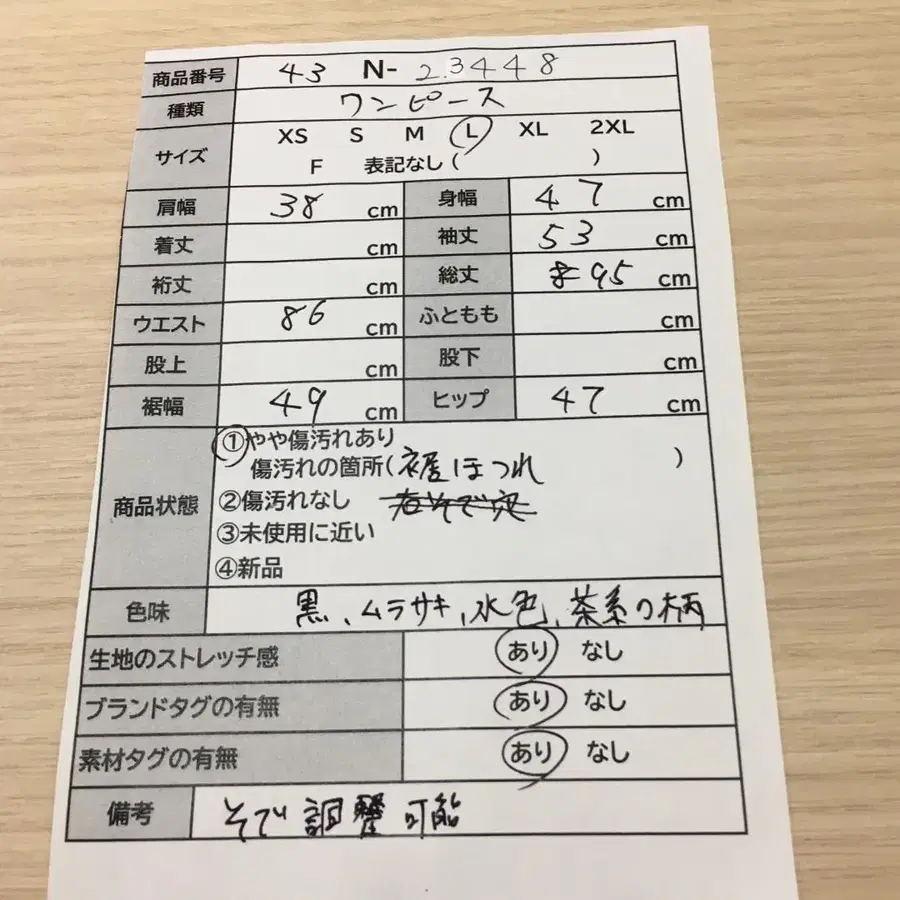 商品番号 43 N- 23448
種類 ワンピース
サイズ XS S M L XL 2XL
F 表記なし( )
肩幅 38 cm 身幅 47 cm
着丈 cm 袖丈 53 cm
裄丈 cm 総丈 95 cm
ウエスト 86 cm ふともも cm
股上 cm 股下 cm
裾幅 49 cm ヒップ 47 cm
商品状態 ①やや傷汚れあり
傷汚れの箇所(裾ほつれ )
②傷汚れなし
③未使用に近い
④新品
色味 黒、ムラサキ、水色、茶系の柄
生地のストレッチ感 あり なし
ブランドタグの有無 あり なし
素材タグの有無 あり なし
備考 そで調整可能